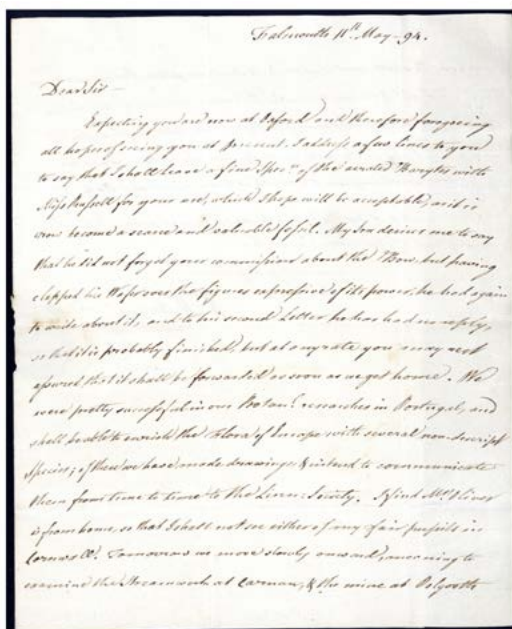 Falmouth 11th May - 94.
Dear Sir
Expecting you are now at Oxford and therefore foregoing
all hopes of seeing you at present. I address a few lines to you
to say that I shall leave a fine Specn. of the aerated Barytes with
Miss Russell for your use, which I hope will be acceptable, as it is
now become a scarce and valuable fossil. My Son desires me to say
that he did not forget your commission about the Bow, but having
slipped his over the figures expressive of its power, he had again
to write about it, and to his second Letter he has had no reply,
so that it is probably finished, but at any rate you may rest
assured that it shall be forwarded as soon as we get home. We
were pretty successful in our Botanl. researches in Portugal, and
shall be able to enrich the Flora of Europe with several non-descript
Species; of these we have made drawings & intend to communicate
them from time to time to the Linn: Society. I find Mrs. Oliver
is from home, so that I shall not see either of my fair pupils in
Cornwall. Tomorrow we move slowly onward, meaning to
examine the Streamwork at Carnan, & the mine at Polgooth